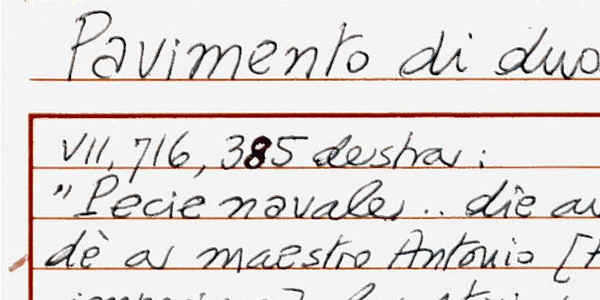 Pavimento di duo
VII, 716, 385 destra:
"Pecie navale.. die au
dè a maestro Antonio [